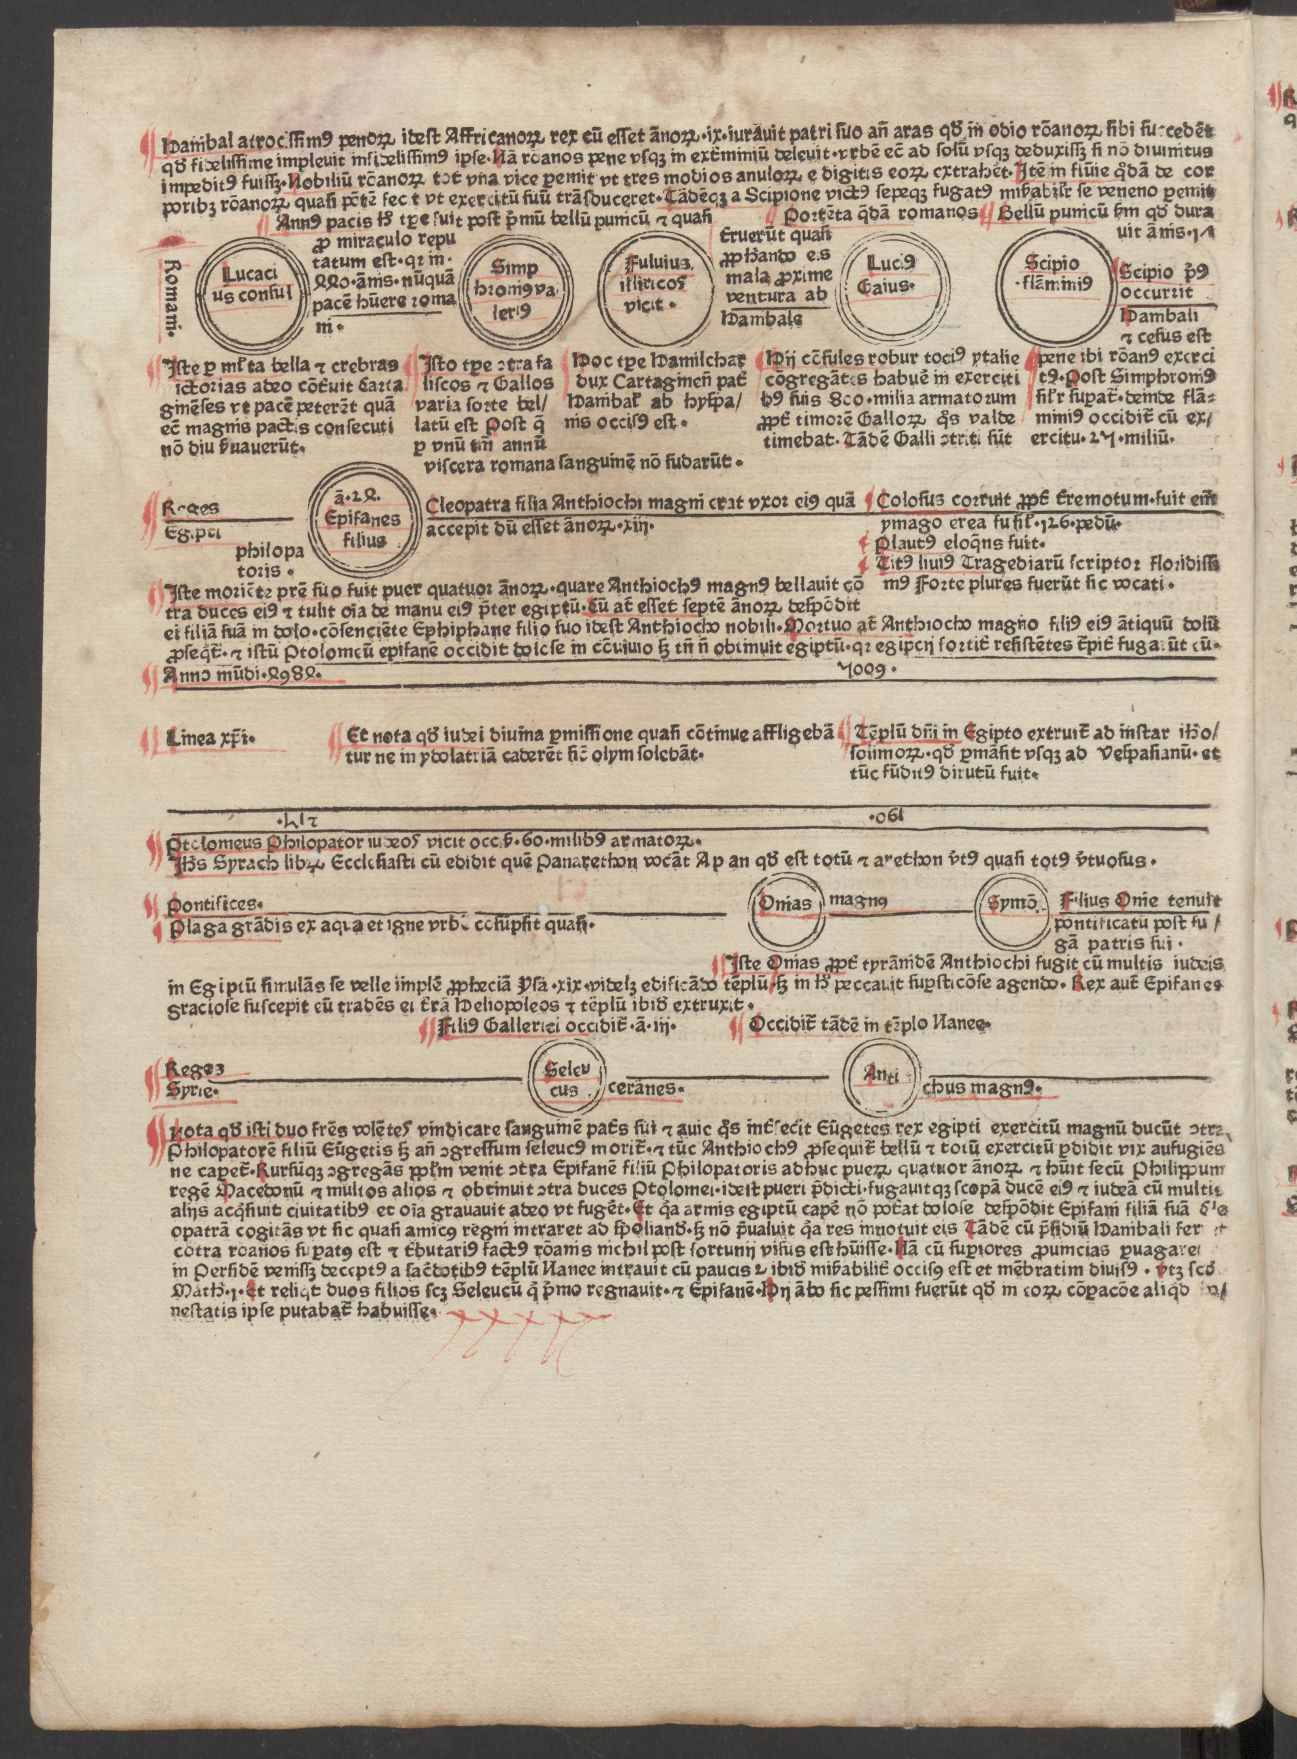 Hanibal atrocissimꝰ penoꝝ idest Affricanoꝝ rex cū esset ānoꝝ·ix·iurauit patri suo an̄ aras qđ in odio rōanoꝝ sibi succedēt
qđ fidelissime impleuit infidelissimꝰ ipse·Nā rōanos pene vsqꝫ in ext̄miniū deleuit·vrbē ec̄ ad solū vsqꝫ deduxissꝫ si nō diuinitus
impeditꝰ fuissꝫ·Nobiliū rōanoꝝ tot vna vice ꝑemit vt tres modios anuloꝝ e digitis eoꝝ extrahēt·Itē in fluuie q̄dā de cor
poribꝫ rōanoꝝ quasi pōtē fecit vt exercitū suū trāsduceret·Tādēqꝫ a Scipione victꝰ sepeqꝫ fugatꝰ mirabilr̄ se veneno ꝑemit
Annꝰ pacis hꝰ tꝑe fuit post p̄mū bellū punicū ⁊ quasi
Portēta q̄dā romanos
Bellū punicū scđm qđ dura
uit ānis·17
Romani·
Lucaci
us consul
ꝓ miraculo repu
tatum est·qꝛ in·
440·ānis·nūquā
pacē hūere roma
ni·
Simp
hroniꝰ va
leriꝰ
Fuluius
illiricos
vicit·
Eruerūt quasi
ꝓphando es
mala ꝓxime
ventura ab
Hambale
Luciꝰ
Gaius·
Scipio
·flāminiꝰ
Scipio p̄ꝰ
occurrit
Hambali
⁊ cesus est
Iste ꝑ ml̄ta bella ⁊ crebras
victorias adeo cōtriuit Carta
ginēses vt pacē peterēt quā
ec̄ magnis pactis consecuti
nō diu ẜuauerūt·
Isto tꝑe ↄtra fa
liscos ⁊ Gallos
varia sorte bel/
latū est Post q̄
ꝑ vnū tm̄ annū
viscera romana sanguinē nō sudarūt·
Hoc tꝑe Hamilchar
dux Cartaginen̄ pat̄
Hanibal̄ ab hysp̄a/
nis occisꝰ est·
Hij cōsules robur tociꝰ ytalie
cōgregātes habuē in exerciti
bꝰ suis 800·milia armatorum
ꝓpt̄ timorē Galloꝝ q̄s valde
timebat·Tādē Galli ↄtriti sūt
pene ibi rōanꝰ exerci
tꝰ·Post Simphroniꝰ
silr̄ suꝑat̄·deinde flā=
miniꝰ occidit̄ cū ex/
ercitu·27·miliū·
Reges
Egipti
philopa
toris·
ā·24·
Epifanes
filius
Cleopatra filia Anthiochi magni erat vxor eiꝰ quā
accepit dū esset ānoꝝ·xiij·
Colosus corruit ꝓpt̄ t̄remotum·fuit em̄
ymago erea ſu ſil̄·126·pedū·
Plautꝰ eloq̄ns fuit·
Titꝰ liuiꝰ Tragediarū scriptor floridissi
mꝰ Forte plures fuerūt sic vocati·
Iste moriēte pr̄e suo fuit puer quatuor ānoꝝ·quare Anthiochꝰ magnꝰ bellauit cō
tra duces eiꝰ ⁊ tulit oīa de manu eiꝰ p̄ter egiptū·Cū at̄ esset septē ānoꝝ despōdit
ei filiā suā in dolo·cōsenciēte Ephiphane filio suo idest Anthiocho nobili·Mortuo at̄ Anthiocho magno filiꝰ eiꝰ ātiquū dolū
ꝓseq̄t̄·⁊ istū Ptolomeū epifanē occidit dolose in cōuiuio sꝫ tn̄ n̄ obtinuit egiptū·qꝛ egipcij fortit̄ resistētes t̄pit̄ fugarūt eū·
Anno mūdi·4984·
7009·
Linea xp̄i·
Et nota qđ iudei diuina ꝑmissione quasi cōtinue affligebā
tur ne in ydolatriā caderēt sic̄ olym solebāt·
Tēplū dn̄i in Egipto extruit̄ ad instar ihꝰo/
solimoꝝ·qđ ꝑmāsit vsqꝫ ad Vesp̄asianū·et
tūc fūditꝰ dirutū fuit·
·217·
·190·
Ptolomeus Philopator iudeos vicit occis̄·60·milibꝰ armatoꝝ·
Ihs̄ Syrach librꝫ Ecclesiasti cū edidit quē Panarethon vocāt A pan qđ est totū ⁊ arethon v̄tꝰ quasi totꝰ v̄tuosus·
Pontifices·
Onias
magnus
Symō·
Filius Onie tenuit
pontificatū post fu/
gā patris sui·
Plaga grādis ex aqua et igne vrbē cōsūpsit quasi·
Iste Onias ꝓpt̄ tyrānidē Anthiochi fugit cū multis iudeis
in Egiptū simulās se velle implē ꝓpheciā Ysā·xix·videlꝫ edificādo tēplū sꝫ in hꝰ peccauit suꝑsticōse agendo·Rex aut̄ Epifanes
graciose suscepit eū tradēs ei t̄rā Heliopoleos ⁊ tēplū ibiđ extruxit·
Filiꝰ Gallerici occidit̄·ā·iij·
Occidit̄ tādē in tēplo Nanee·
Reges
Syrie·
Seleu
cus
ceranes·
Anti
chus magnꝰ·
Nota qđ isti duo frēs volētes vindicare sanguinē pat̄s sui ⁊ auie q̄s int̄fecit Eūgetes rex egipti exercitū magnū ducūt ↄtra
Philopatorē filiū Eūgetis sꝫ an̄ ↄgressum seleucꝰ morit̄·⁊ tūc Anthiochꝰ ꝓsequit̄ bellū ⁊ totū exercitū ꝑdidit vix aufugiēs
ne caꝑet̄·Rursūqꝫ ↄgregās ꝓpl̄m venit ↄtra Epifanē filiū Philopatoris adhuc pueꝝ quatuor ānoꝝ ⁊ hūit secū Philippum
regē Macedonū ⁊ multos alios ⁊ obtinuit ↄtra duces Ptolomei·idest pueri p̄dicti·fugauitqꝫ scopā ducē eiꝰ ⁊ iudeā cū multis
alijs acq̄siuit ciuitatibꝰ et oīa grauauit adeo vt fugēt·Et q̄a armis egiptū capē nō pot̄at dolose despōdit Epifani filiā suā Cle
opatrā cogitās vt sic quasi amicꝰ regni intraret ad spoliandꝰ·sꝫ nō p̄ualuit q̄a res innotuit eis Tādē cū p̄sidiū Hambali fer
cōtra roanos suꝑatꝰ est ⁊ t̄butariꝰ factꝰ rōanis nichil post fortunij visus est hūisse·Nā cū suꝑiores ꝓuincias ꝑuagaret
in Persidē venissꝫ deceptꝰ a sac̄dotibꝰ tēplū Nanee intrauit cū paucis ⁊ ibiđ mirabilit̄ occisꝰ est et mēbratim diuisꝰ·vtꝫ scđ
Mathꝰ·1·Et reliq̄t duos filios scꝫ Seleucū q̄ p̄mo regnauit·⁊ Epifanē·Hij ābo sic pessimi fuerūt qđ in eoꝝ cōꝑacōe aliq̄d
nestatis ipse putabat̄ habuisse·